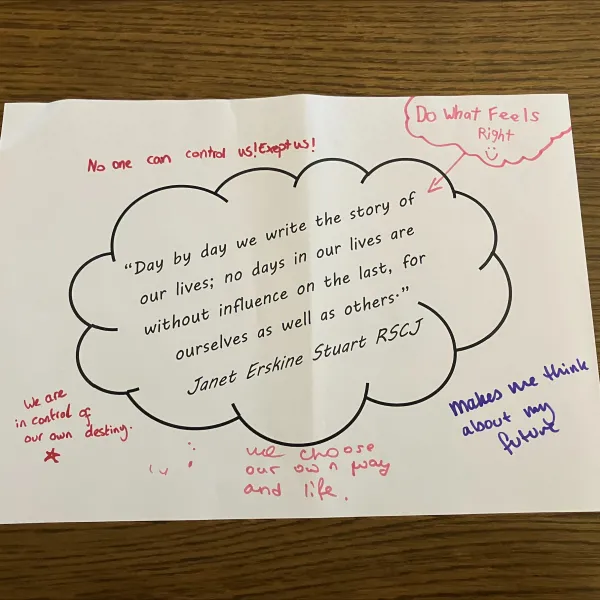 Do What Feels
Right
No one can control us! Exept us!
“Day by day we write the story of
our lives; no days in our lives are
without influence on the last, for
ourselves as well as others.”
Janet Erskine Stuart RSCJ
We are
in control of
our own destiny.
makes me think
about my
future
we choose
our own way
and life.